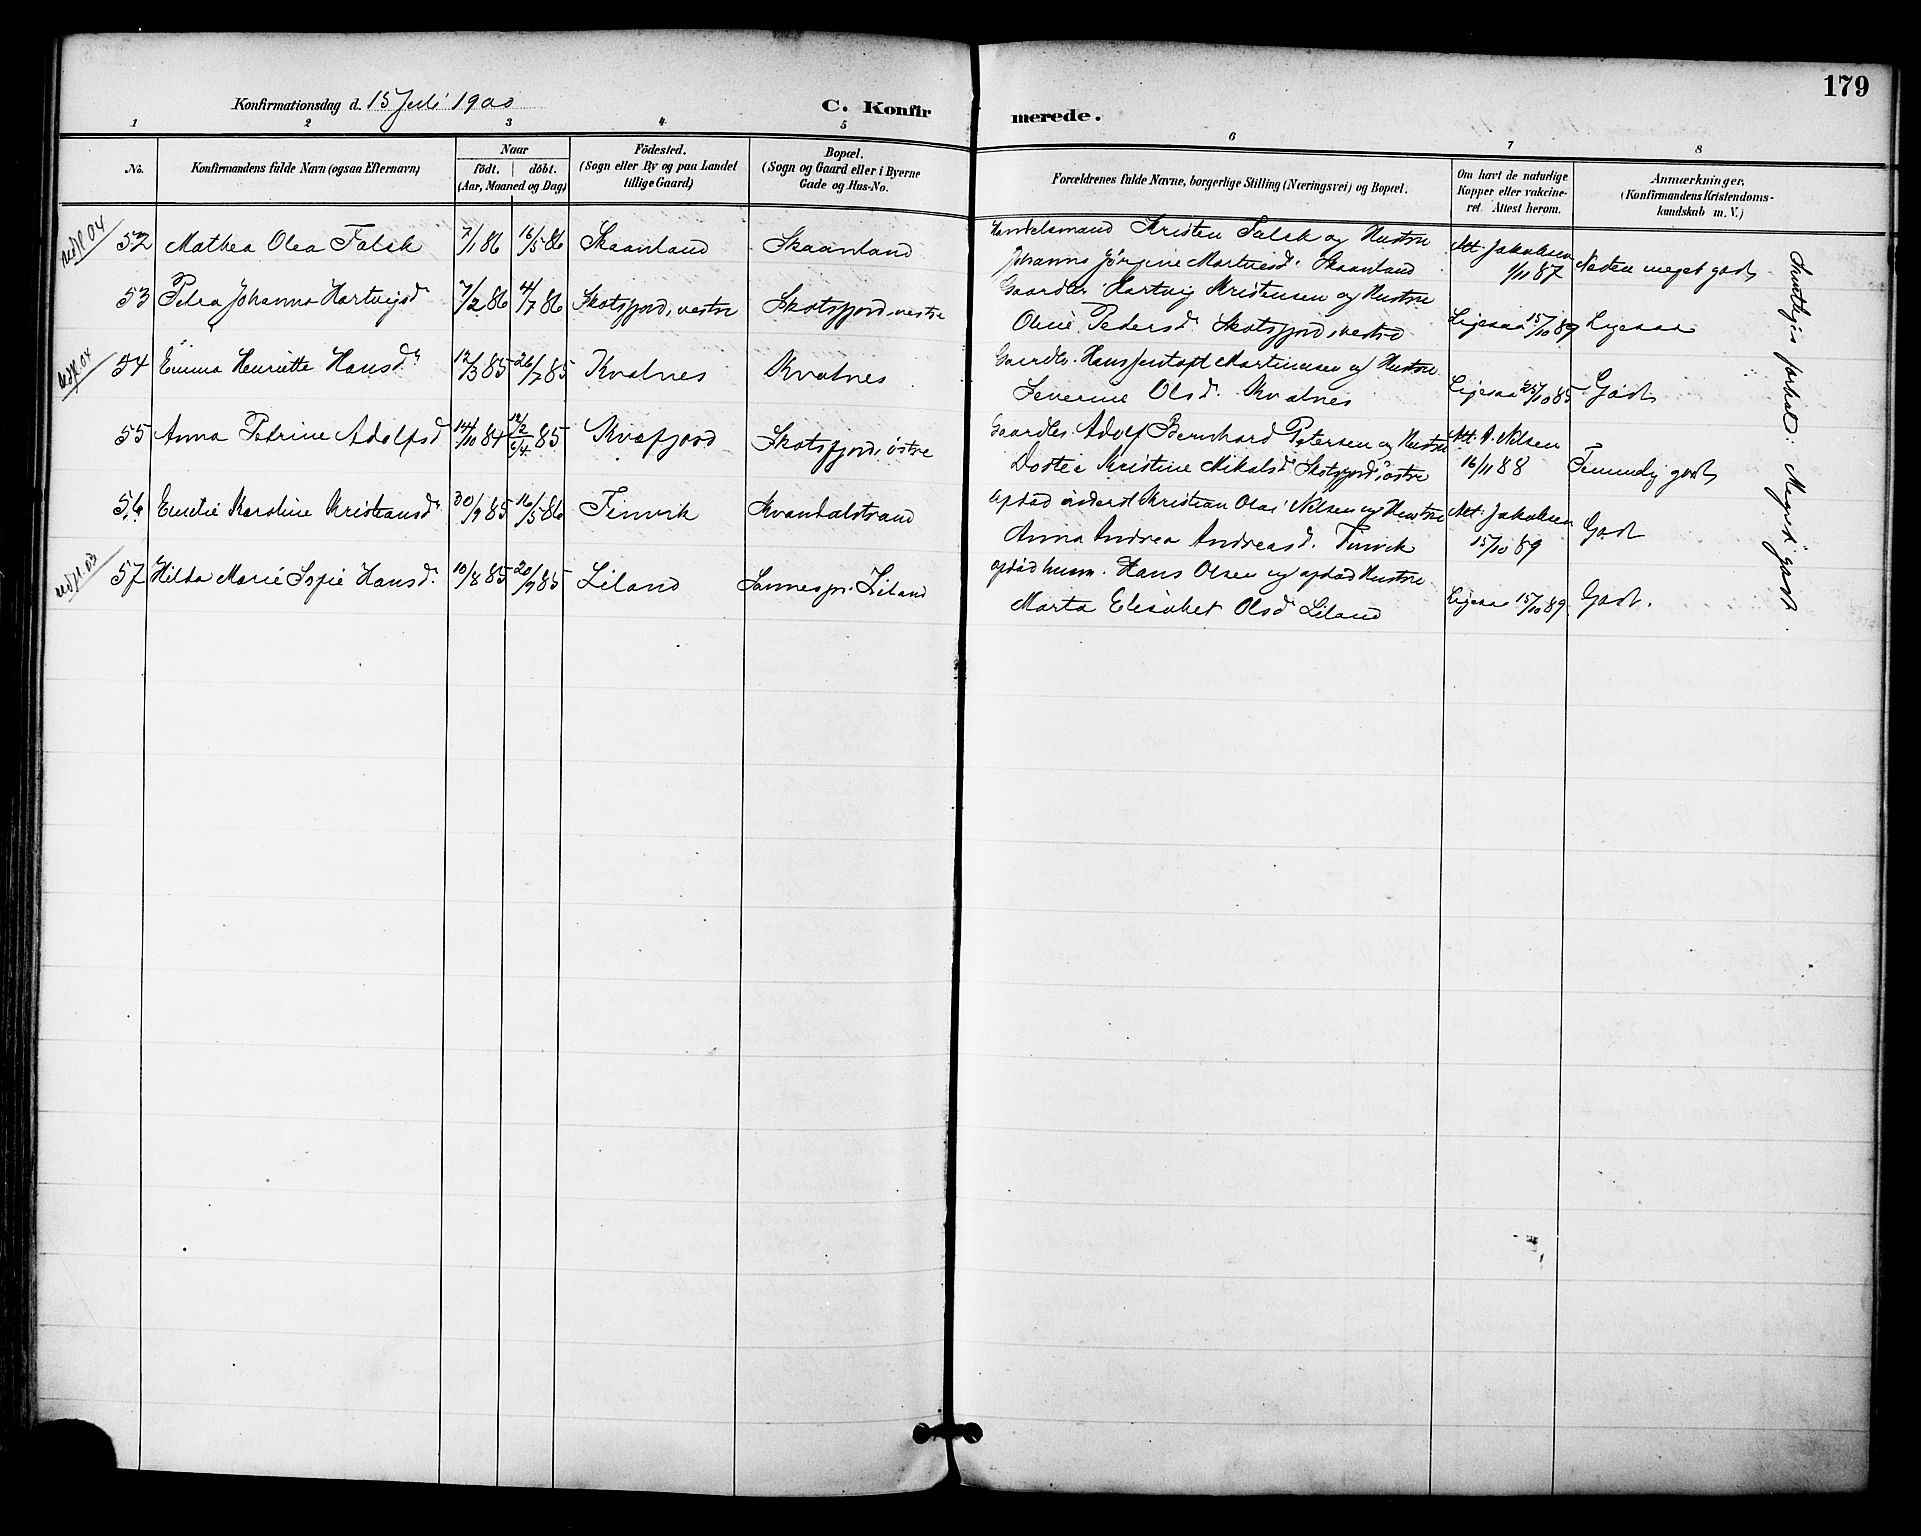 179
Konfirmationsdag d. 15 Juli 1900
C. Konfirmerede.
1 2 3 4 5 6 7 8
No.
Konfirmandens fulde Navn (ogsaa Efternavn)
Naar
födt. döbt.
(Aar, Maaned og Dag)
Födested.
(Sogn eller By og paa Landet
tillige Gaard)
Bopæl.
(Sogn og Gaard eller i Byerne
Gade og Hus-No.
Forældrenes fulde Navne, borgerlige Stilling (Næringsvei) og Bopæl.
Om havt de naturlige
Kopper eller vakcine-
ret. Attest herom.
Anmærkninger.
(Konfirmandens Kristendoms-
kundskab m. V.)
52 Mathea Olea Falsk 7/1 86 16/5 86 Skaanland Skaanland Handelsmand Kristen Falsk og Hustru
Johanna Jörgine Martnesd. Skaanland Att. Jakobsen 1/11 87 Næsten meget godt
53 Petra Johanna Hartvigsd 7/2 86 4/7 86 Skotsfjord, vestre Skotsfjord, vestre Gaardbr. Hartvig Kristensen og Hustru
Oline Pedersd. Skotsfjord, vestre Ligesaa 15/10 89 Ligesaa
54 Emma Henriette Hansd. 12/3 85 26/7 85 Kvalnes Kvalnes Gaardbr. Hans Jentoft Martinusen og Hustru
Severine Olsd. Kvalnes Ligesaa 25/10 85 Godt
55 Anna Petrine Adolfsd 14/10 84 12/2 6/4 85 Kvæfjord Skotsfjord, östre Gaardbr. Adolf Bernhard Petersen og Hustru
Kristine Nikolsd. Skotsfjord, östre Att. A. Nilsen 16/11 88 Temmelig godt
56 Emelie Karoline Kristiansd. 30/9 85 16/5 86 Finvik Kvandalstrand Kristian Olai Nilsen og Hustru
Anna Andrea Andreasd. Finvik Att. Jakobsen 15/10 89 Godt
57 Hilda Marie Sofie Hansd. 10/8 85 20/9 85 Liland Sannes pr. Liland afdød husm. Hans Olsen og afdød Hustru
Marta Elisabet Olsd Liland Ligesaa 15/10 89. Godt.